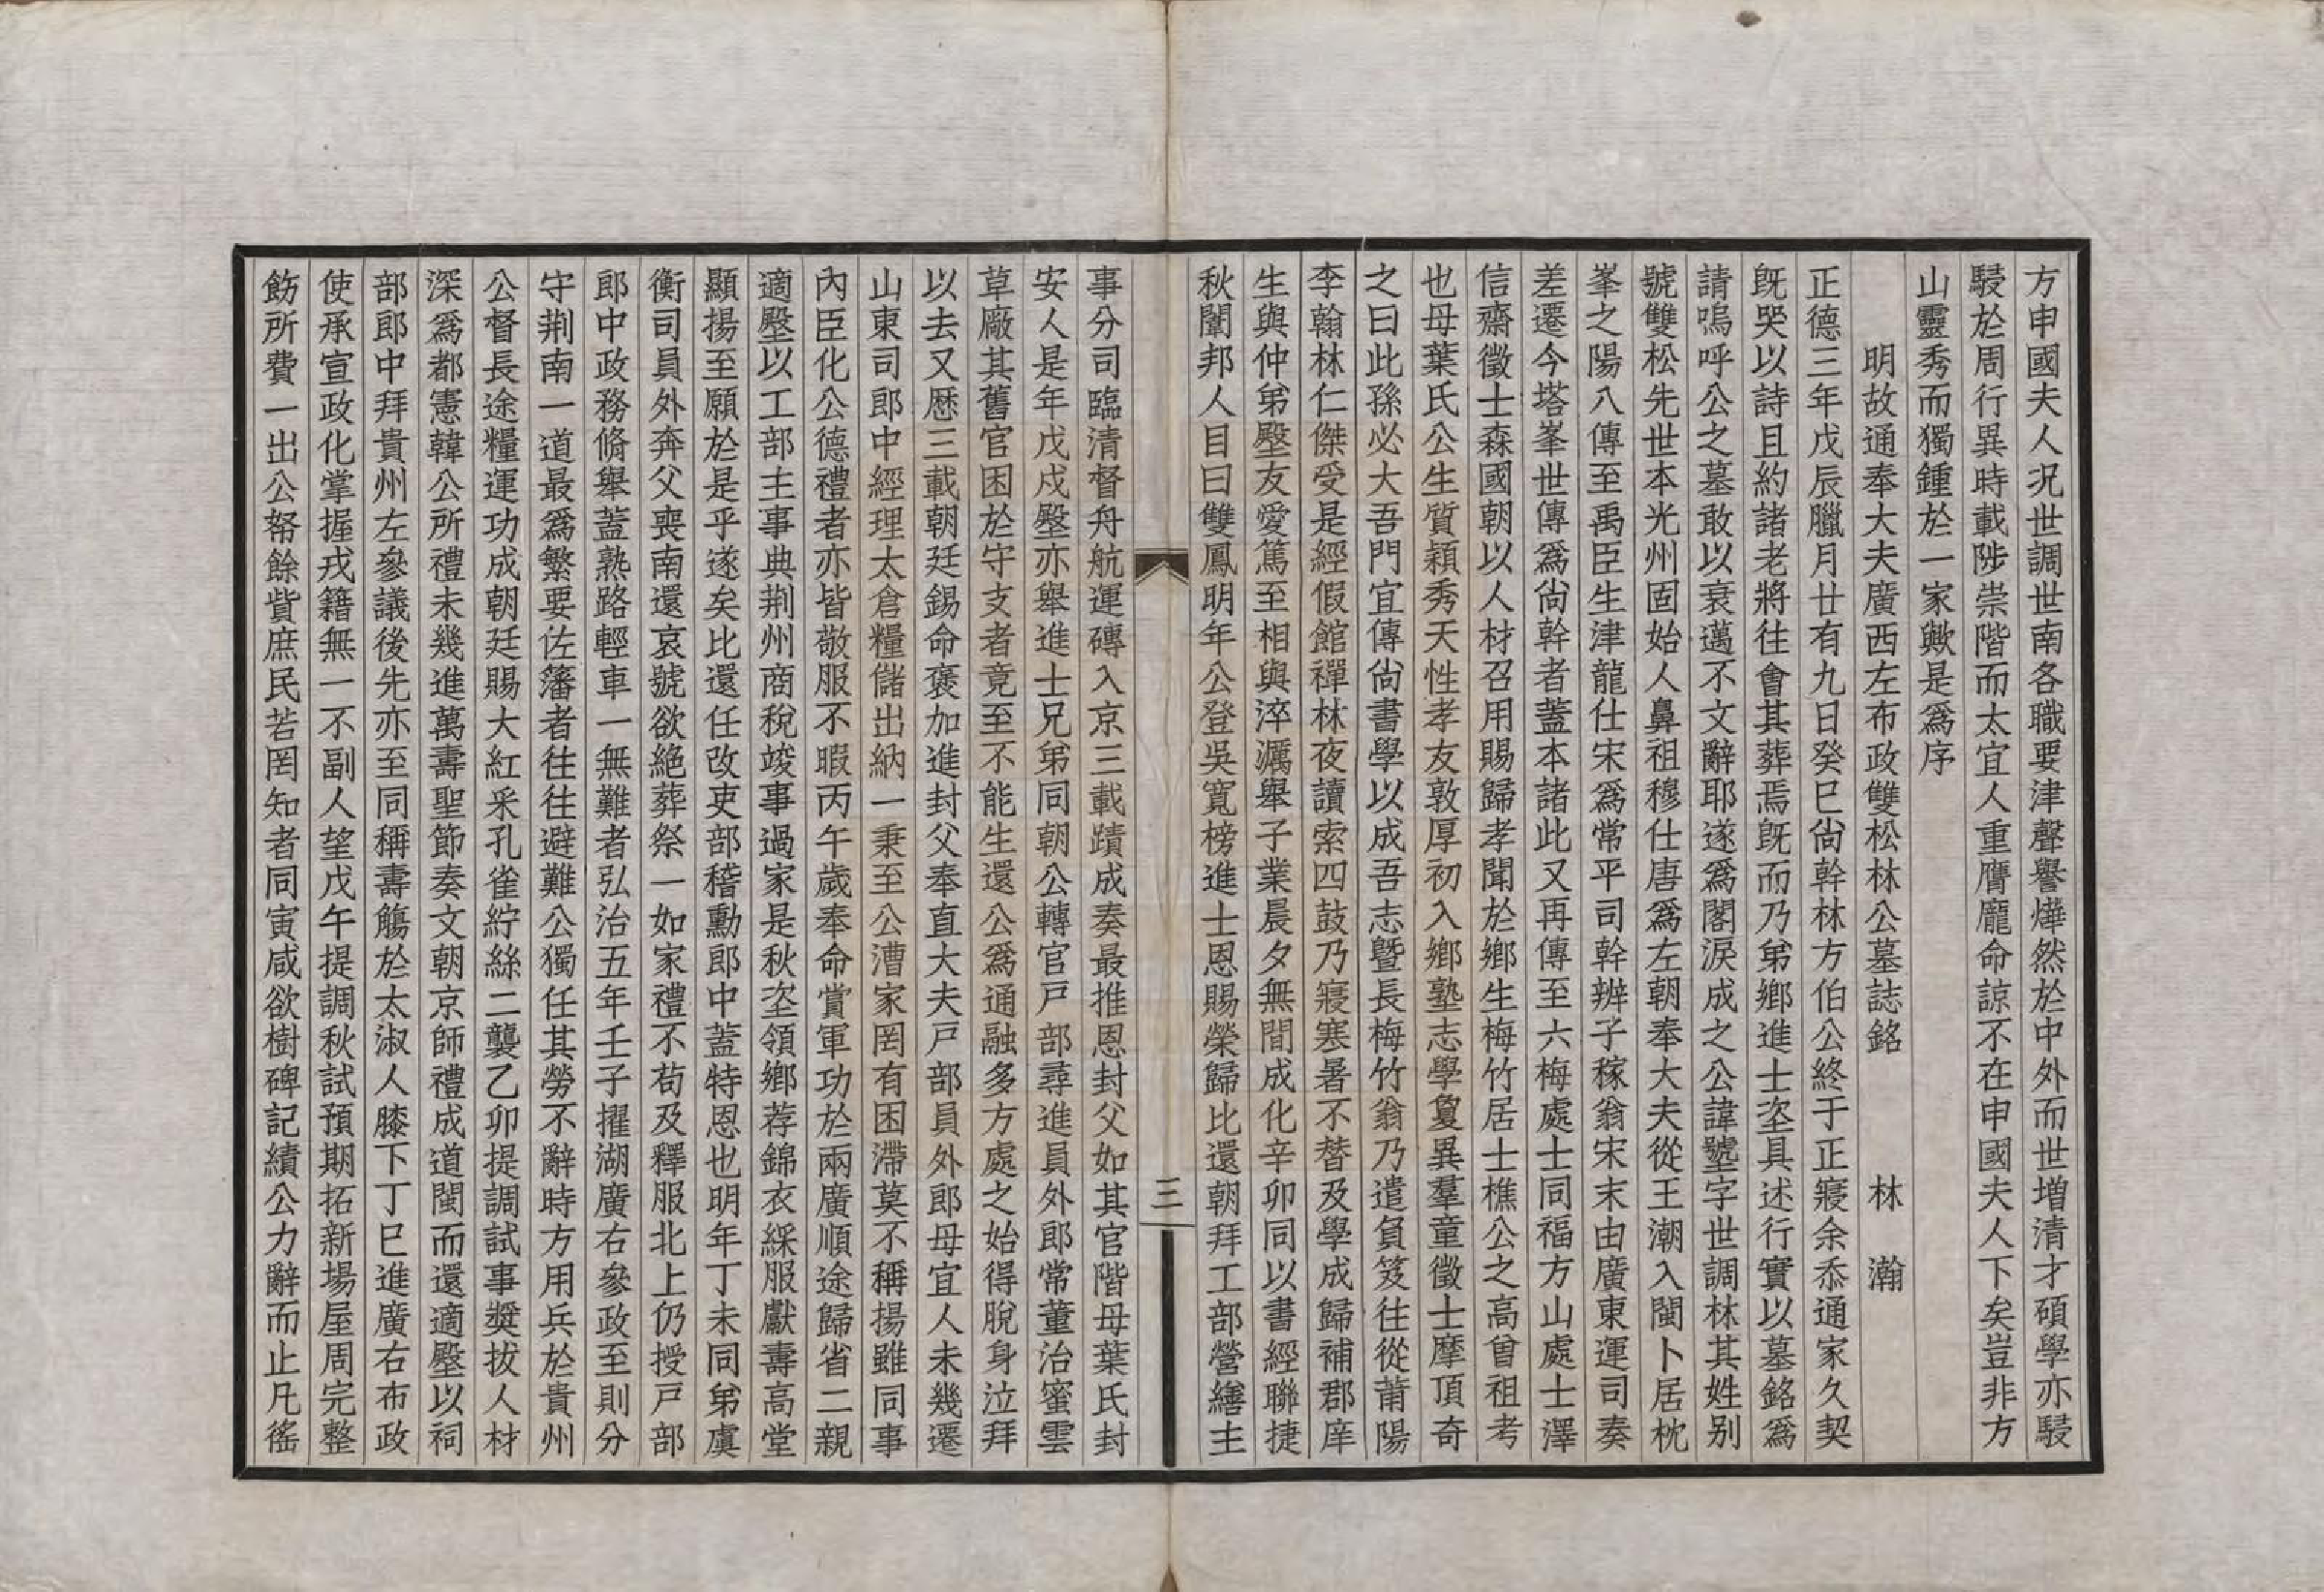 方申國夫人况世調世南各職要津聲譽燁然於中外而世增清才碩學亦駸
駸於周行異時載陟崇階而太宜人重膺龐命諒不在申國夫人下矣豈非方
山靈秀而獨鍾於一家歟是爲序
明故通奉大夫廣西左布政雙松林公墓誌銘　林　瀚
正德三年戊辰臘月廿有九日癸巳尙幹林方伯公終于正寢余忝通家久契
旣哭以詩且約諸老將往會其葬焉旣而乃弟鄉進士坖具述行實以墓銘爲
請嗚呼公之墓敢以衰邁不文辭耶遂爲閣淚成之公諱壂字世調林其姓别
號雙松先世本光州固始人鼻祖穆仕唐爲左朝奉大夫從王潮入閩卜居枕
峯之陽八傳至禹臣生津龍仕宋爲常平司幹辨子稼翁宋末由廣東運司奏
差遷今塔峯世傳爲尙幹者蓋本諸此又再傳至六梅處士同福方山處士澤
信齋徵士森國朝以人材召用賜歸孝聞於鄉生梅竹居士樵公之高曾祖考
也母葉氏公生質穎秀天性孝友敦厚初入鄉塾志學敻異羣童徵士摩頂奇
之曰此孫必大吾門宜傳尙書學以成吾志曁長梅竹翁乃遣負笈往從莆陽
李翰林仁傑受是經假館禪林夜讀索四鼓乃寢寒暑不替及學成歸補郡庠
生與仲弟壂友愛篤至相與淬濿舉子業晨夕無間成化辛卯同以書經聯捷
秋闈邦人目曰雙鳳明年公登吳寬榜進士恩賜榮歸比還朝拜工部營繕主
三
事分司臨清督舟航運磚入京三載蹟成奏最推恩封父如其官階母葉氏封
安人是年戊戍壂亦舉進士兄弟同朝公轉官戸部尋進員外郎常董治蜜雲
草廠其舊官困於守支者竟至不能生還公爲通融多方處之始得脫身泣拜
以去又歷三載朝廷錫命褒加進封父奉直大夫戸部員外郎母宜人未幾遷
山東司郎中經理太倉糧儲出納一秉至公漕家罔有困滯莫不稱揚雖同事
內臣化公德禮者亦皆敬服不暇丙午歲奉命賞軍功於兩廣順途歸省二親
適壂以工部主事典荆州商稅竣事過家是秋坖領鄉荐錦衣綵服獻壽高堂
顯揚至願於是乎遂矣比還任改吏部稽勳郎中蓋特恩也明年丁未同弟虞
衡司員外奔父喪南還哀號欲絶葬祭一如家禮不苟及釋服北上仍授戸部
郎中政務脩舉蓋熟路輕車一無難者弘治五年壬子擢湖廣右參政至則分
守荆南一道最爲繁要佐籓者往往避難公獨任其勞不辭時方用兵於貴州
公督長途糧運功成朝廷賜大紅采孔雀紵絲二襲乙卯提調試事奬拔人材
深爲都憲韓公所禮未幾進萬壽聖節奏文朝京師禮成道閩而還適壂以祠
部郎中拜貴州左參議後先亦至同稱壽觴於太淑人膝下丁巳進廣右布政
使承宣政化掌握戎籍無一不副人望戊午提調秋試預期拓新場屋周完整
飭所費一出公帑餘貲庶民若罔知者同寅咸欲樹碑記績公力辭而止凡徭